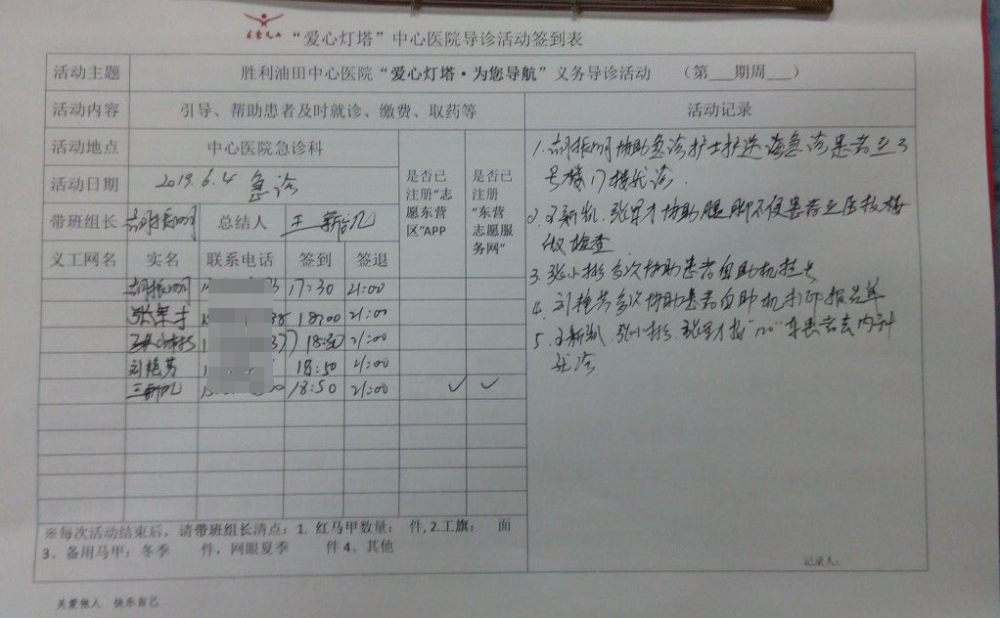 “爱心灯塔”中心医院导诊活动签到表
活动主题 胜利油田中心医院“爱心灯塔·为您导航”义务导诊活动 （第___期周___）
活动内容 引导、帮助患者及时就诊、缴费、取药等 活动记录
活动地点 中心医院急诊科
活动日期 2019.6.4 急诊
是否已注册“志愿东营区”APP
是否已注册“东营志愿服务网”
带班组长 总结人 王新凯
义工网名 实名 联系电话 签到 签退
17:30 21:00
张军才 18:00 21:00
18:30 21:00
刘艳芳 18:50 21:00
王新凯 18:50 21:00 ✓ ✓
1. 协助急诊护士护送 急诊患者至3
号楼门 接诊.
2. 王新凯、张军才协助腿脚不便患者至
做检查
3. 张小彬多次协助患者自助机挂号
4. 刘艳芳多次协助患者自助机打印报告单
5. 王新凯、张小彬、张军才 患者去内科
就诊
※每次活动结束后，请带班组长清点：1. 红马甲数量： 件, 2.工旗： 面
3、备用马甲：冬季 件，网眼夏季 件 4、其他
记录人：
关爱他人 快乐自己